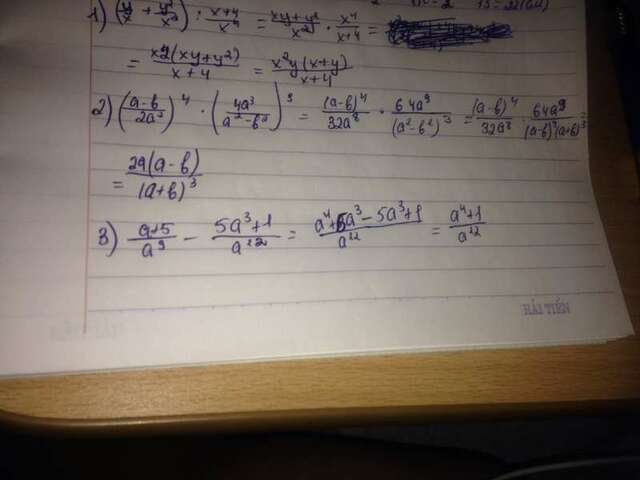 1) (y/x + y²/x²) : (x+y)/x⁴ = (xy+y²)/x² · x⁴/(x+y) =
= x²(xy+y²)/(x+y) = x²y(x+y)/(x+y)
2) ((a-b)/2a²)⁴ · (4a³/(a²-b²))³ = (a-b)⁴/32a⁸ · 64a⁹/(a²-b²)³ = (a-b)⁴/32a⁸ · 64a⁹/(a-b)³(a+b)³ =
= 2a(a-b)/(a+b)³
3) (a+5)/a⁹ - (5a³+1)/a¹² = (a⁴+5a³-5a³+1)/a¹² = (a⁴+1)/a¹²
HẢI TIẾN